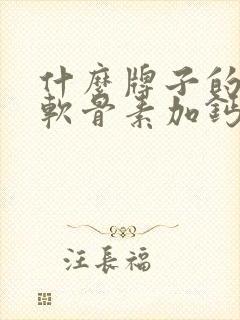 什麼牌子的
軟骨素加鈣
汪長福